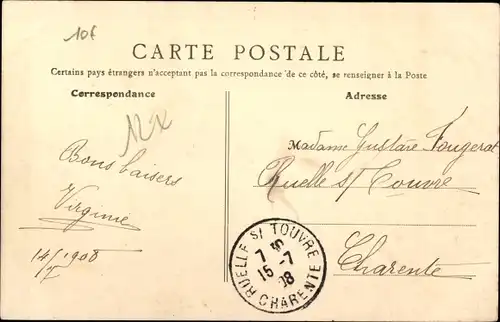 10f
CARTE POSTALE
Certains pays étrangers n'acceptant pas la correspondance de ce côté, se renseigner à la Poste
Correspondance
Adresse
Bons baisers
Virginie
14/7 1908
Madame Gustave Fougerat
Ruelle s/ Touvre
Charente
RUELLE S/ TOUVRE
7 30
15 -7
08
CHARENTE